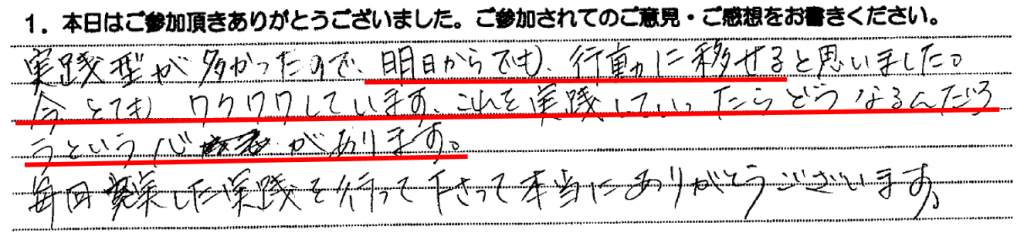 1. 本日はご参加頂きありがとうございました。ご参加されてのご意見・ご感想をお書きください。
実践型が多かったので、明日からでも、行動に移せると思いました。
今とても ワクワクしています、これを実践していったらどうなるんだろ
うという心 があります。
毎回 した実践を行って下さって本当にありがとうございます。